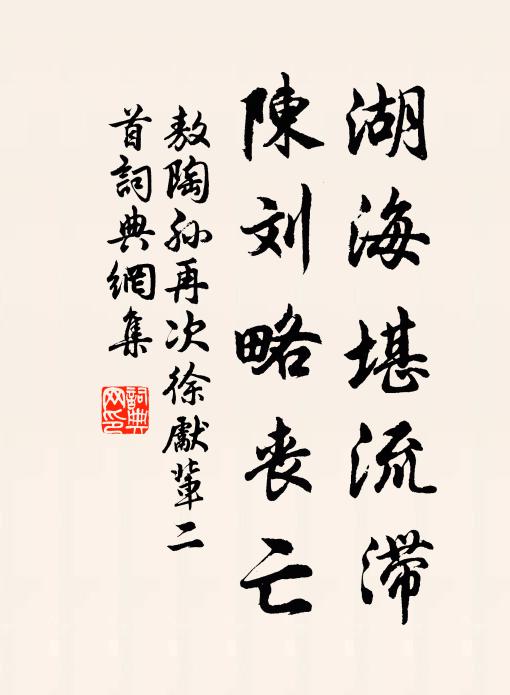 湖海堪流滞
陳刘略丧亡
敖陶孙再次徐獻輩二
首詞典網集
詞典
网印